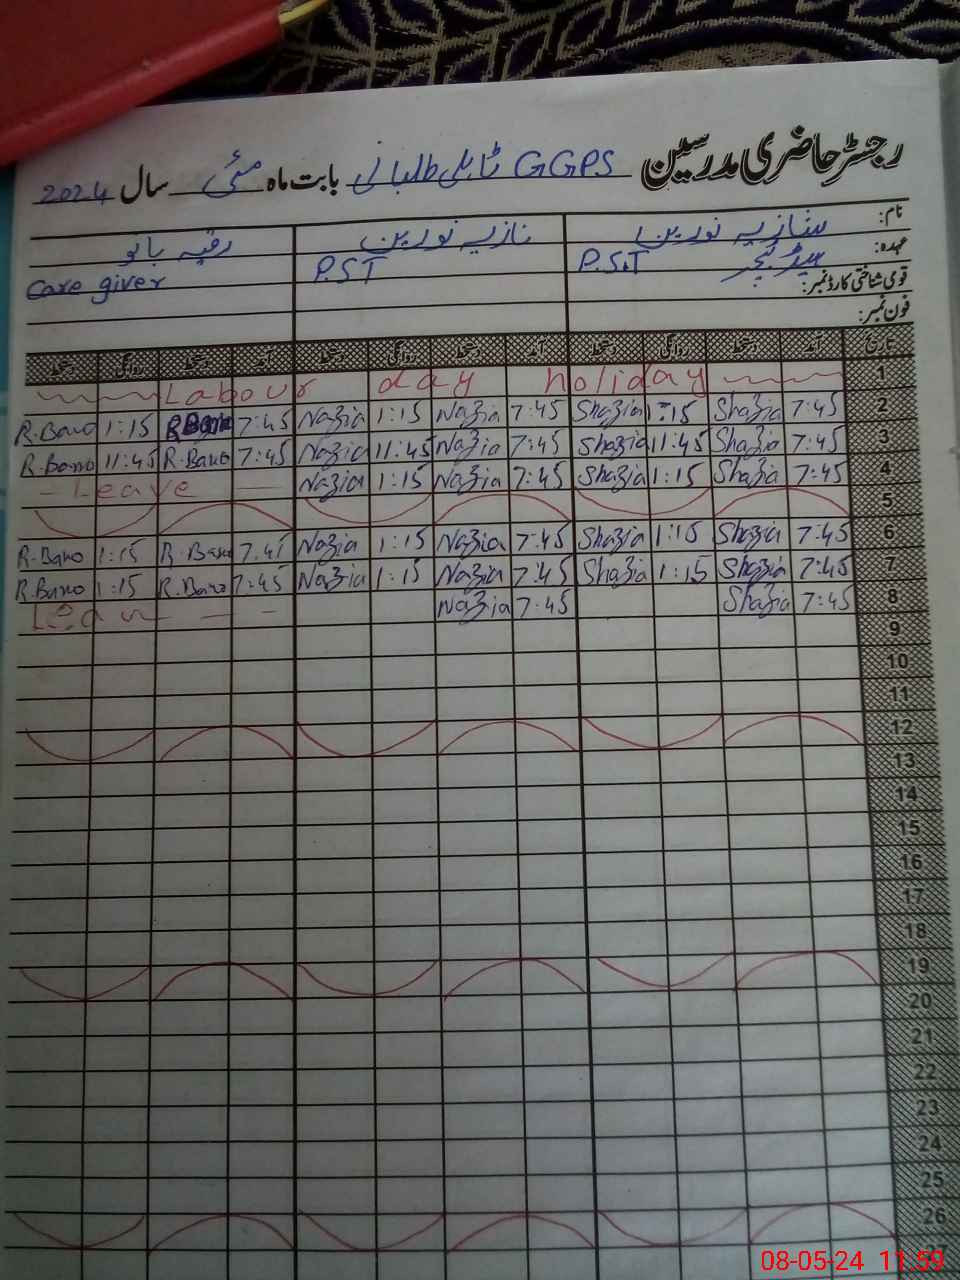 رجسٹر حاضری مدرسین GGPS ٹاہلی طلبانی بابت ماہ مئی سال 2024
نام: شازیہ نورین نازیہ نورین رقیہ بانو
عہدہ: ہیڈ ٹیچر P.S.T P.S.T Care giver
قومی شناختی کارڈ نمبر:
فون نمبر:
تاریخ آمد دستخط روانگی دستخط آمد دستخط روانگی دستخط آمد دستخط روانگی دستخط
Labour day holiday 1
R.Bano 1:15 R.Bano 7:45 Nazia 1:15 Nazia 7:45 Shazia 1:15 Shazia 7:45 2
R.Bano 11:45 R.Bano 7:45 Nazia 11:45 Nazia 7:45 Shazia 11:45 Shazia 7:45 3
Leave Nazia 1:15 Nazia 7:45 Shazia 1:15 Shazia 7:45 4
5
R.Bano 1:15 R.Bano 7:45 Nazia 1:15 Nazia 7:45 Shazia 1:15 Shazia 7:45 6
R.Bano 1:15 R.Bano 7:45 Nazia 1:15 Nazia 7:45 Shazia 1:15 Shazia 7:45 7
Nazia 7:45 Shazia 7:45 8
9
10
11
12
13
14
15
16
17
18
19
20
21
22
23
24
25
26
27
08-05-24 11:59